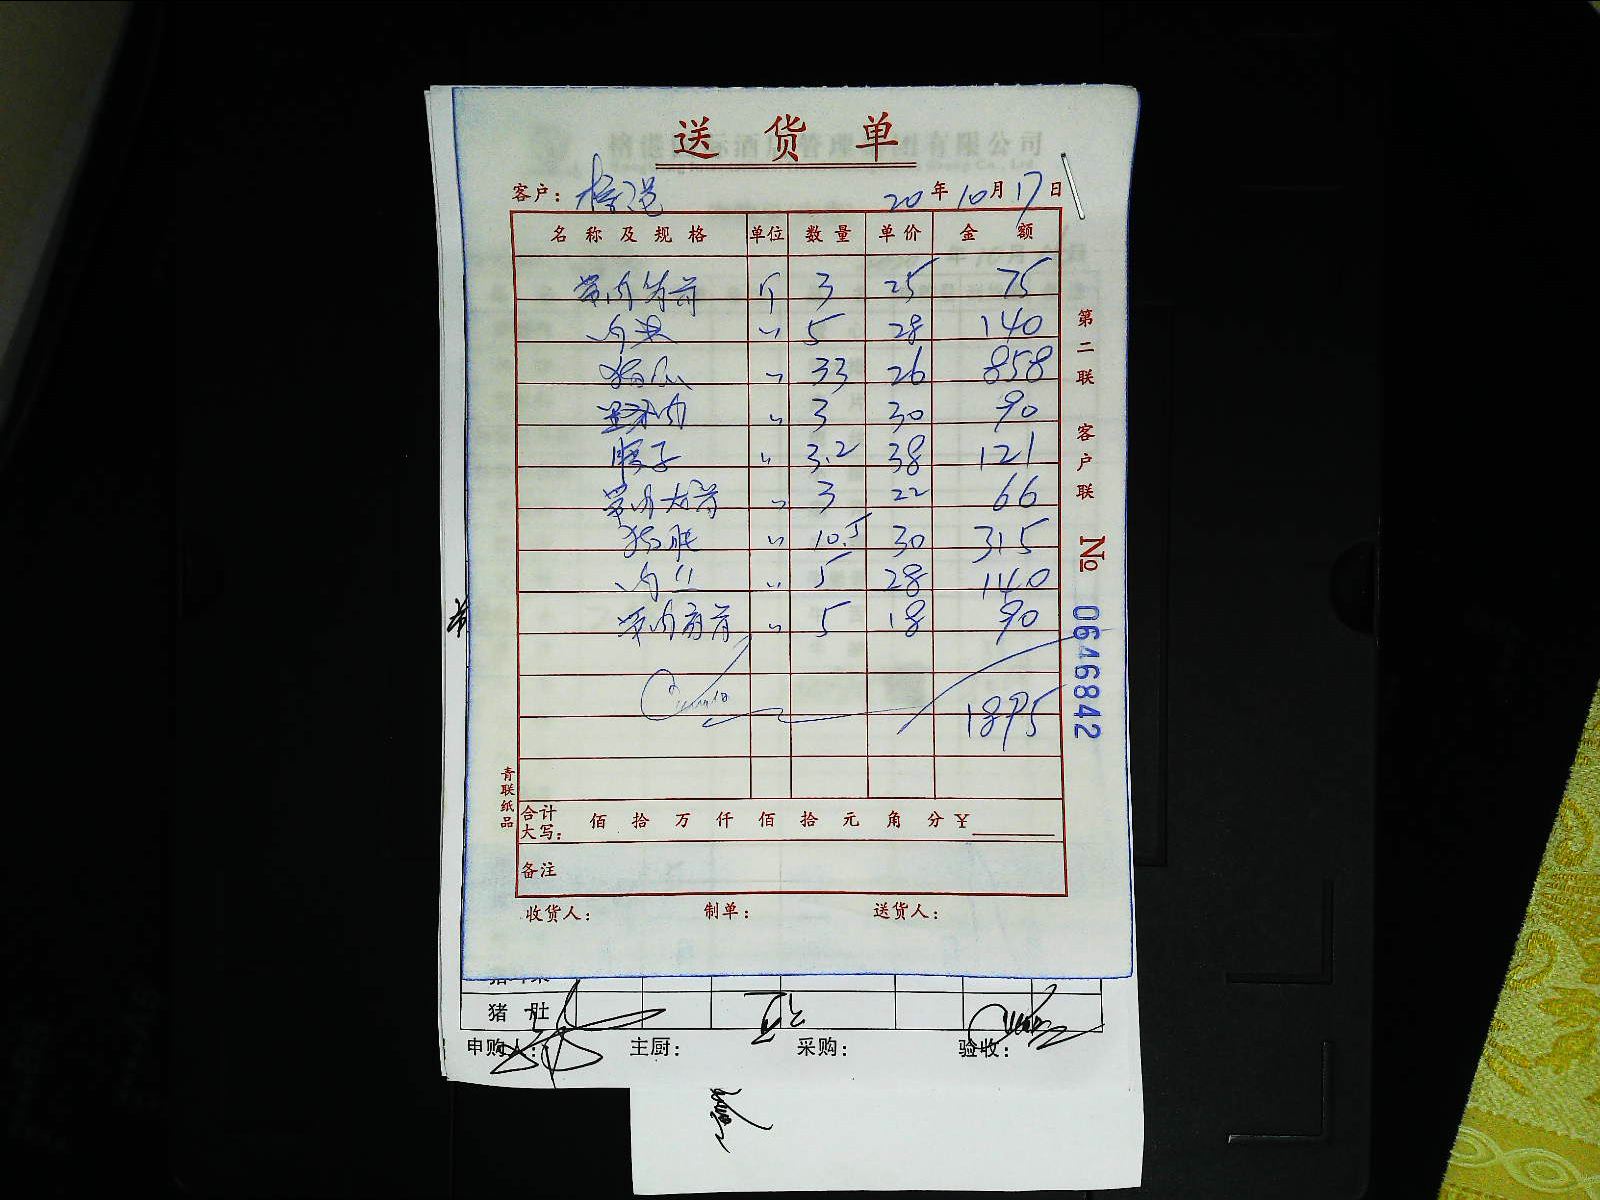 送货单
客户： 20年10月17日
名称及规格 单位 数量 单价 金额
带肉 斤 3 25 75
肉 〃 5 28 140
猪 〃 33 26 858
五花肉 〃 3 30 90
腰子 〃 3.2 38 121
带肉龙骨 〃 3 22 66
〃 10.5 30 315
肉丝 〃 5 28 140
带肉扇骨 〃 5 18 90
1895
合计大写： 佰 拾 万 仟 佰 拾 元 角 分 ¥
备注
收货人： 制单： 送货人：
第二联 客户联
No 0646842
青联纸品
猪肚
申购人： 主厨： 采购： 验收：